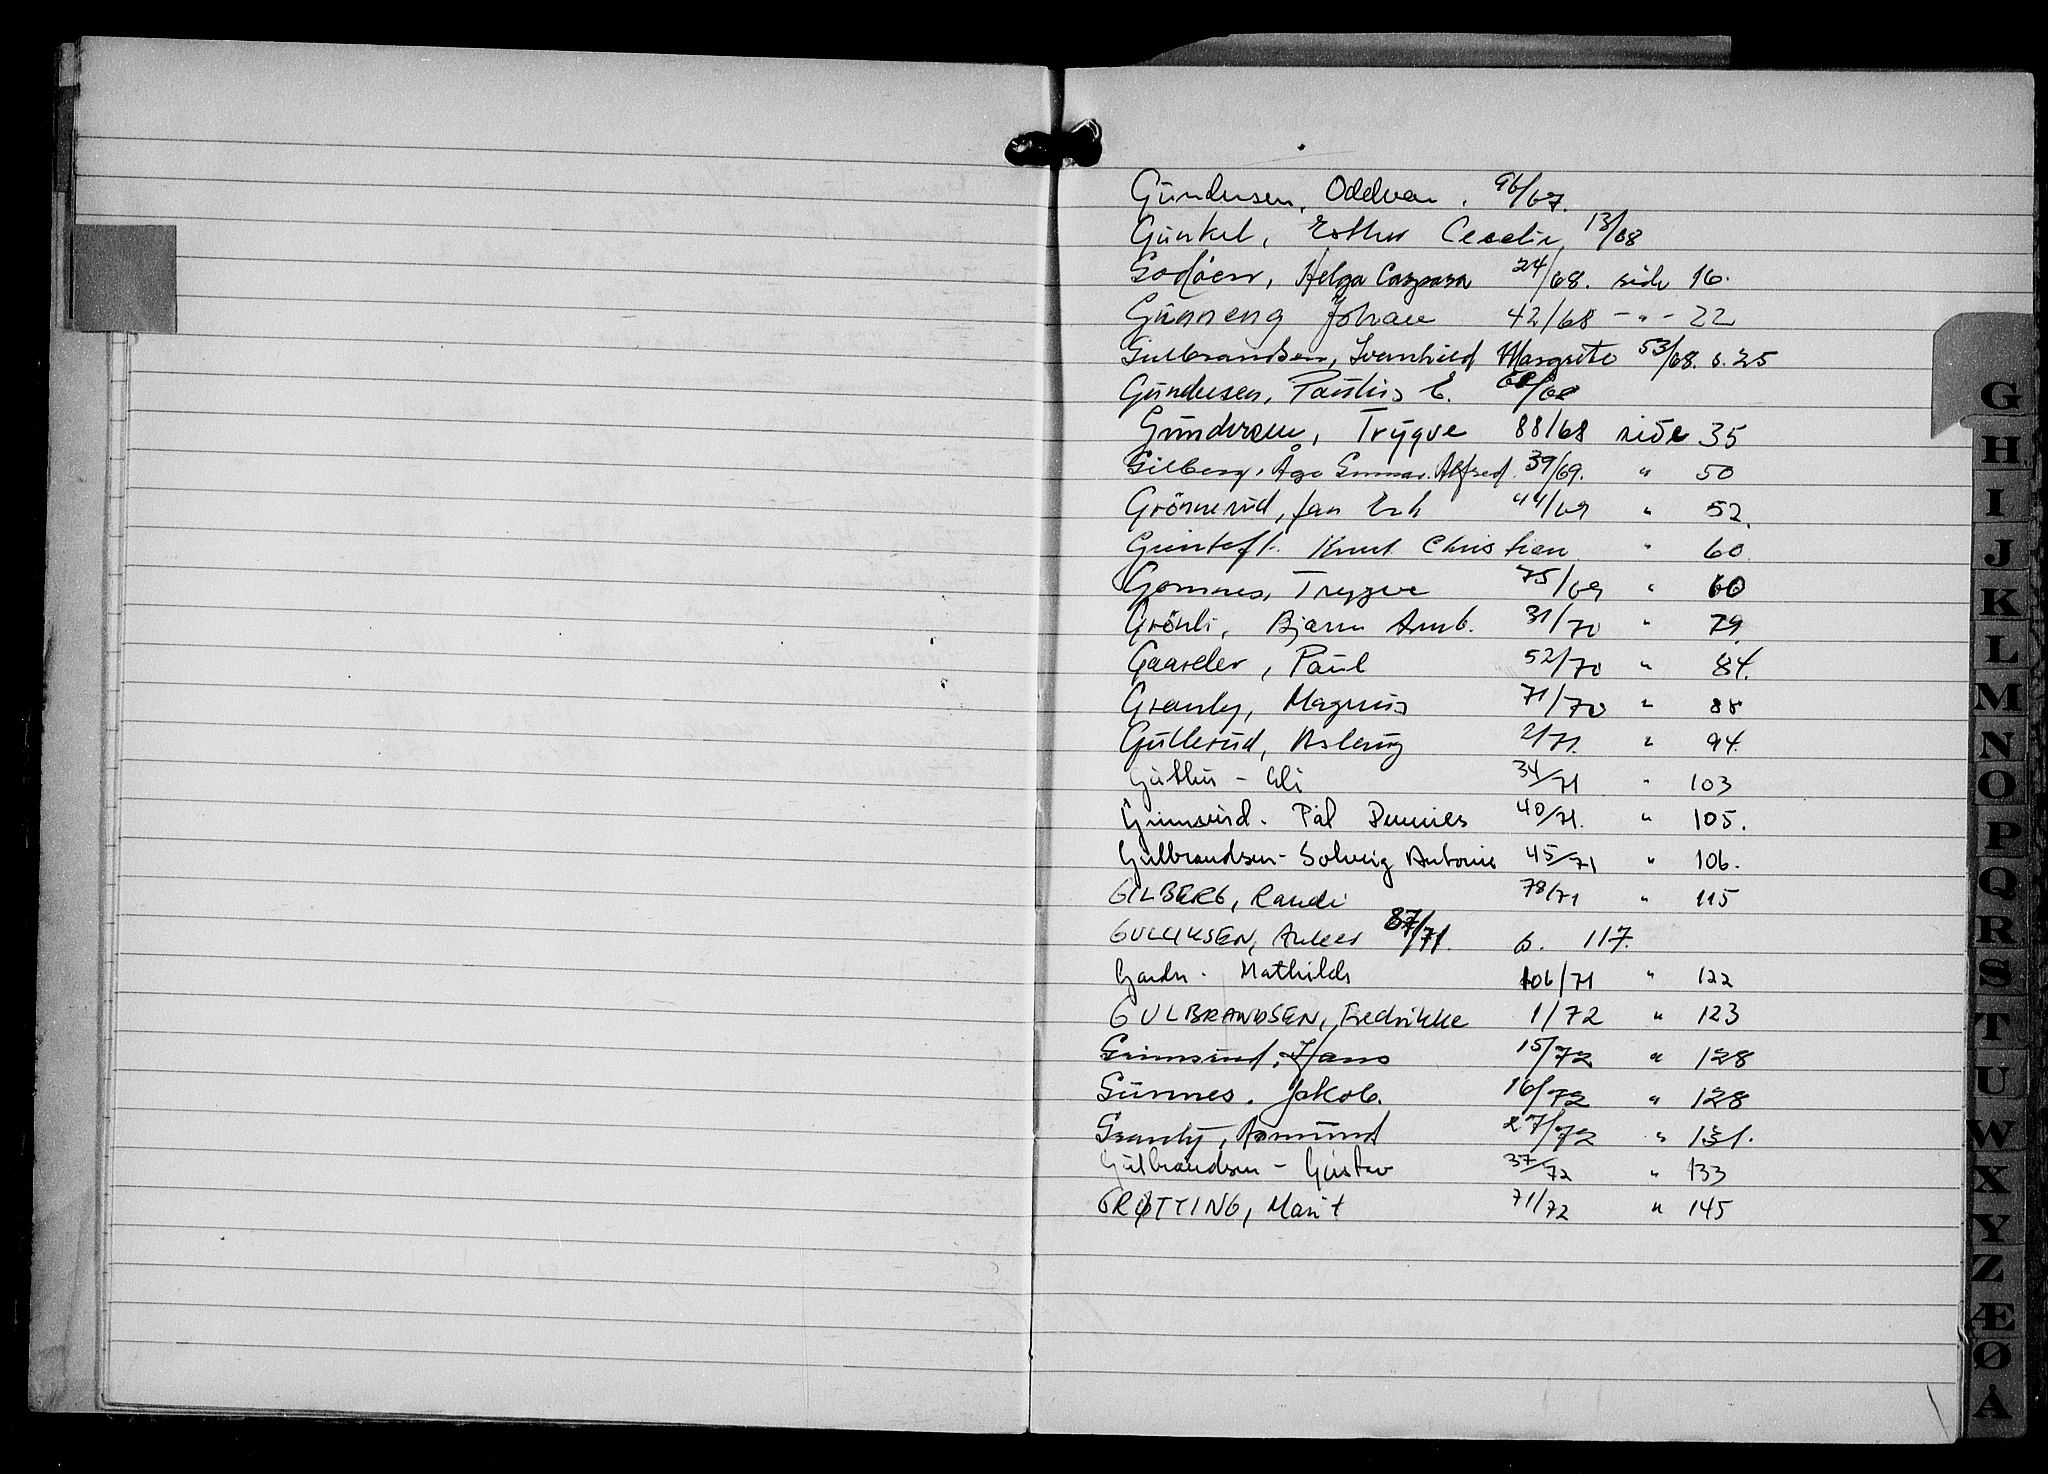 Gundersen, Oddvar. 96/67.
Gunkel, Esther Cecelie 13/68
Godøen, Helga Caspara 24/68. side 16.
Gunneng Johan 42/68 - " - 22
Gulbrandsen, Svanhild Margrete 53/68. s. 25
Gundersen, Paulus E. 68/68
Gundersen, Trygve 88/68 side 35
Gilberg, Åge Gunnar Alfred. 39/69. " 50
Grönnerud, Jan Erik 44/69 " 52.
Knut Christian " 60
Gomnes, Trygve 75/69 " 60
Grönli, Bjarne Arnb. 31/70 " 79.
Gaarder, Paul 52/70 " 84.
Granly, Magnus 71/70 " 88
Gullerud, Aslaug 2/71. " 94.
34/71 " 103
Grimsrud. Pål Dennies 40/71. " 105.
Gulbrandsen - Solveig Antonie 45/71 " 106.
GILBERG, Randi 78/71 " 115
GULLIKSEN, Anker 87/71. s. 117.
Mathilde 106/71 " 122
GULBRANDSEN, Fredrikke 1/72 " 123
Grimsrud, Hans 15/72 " 128
Gunnes. Jakob. 16/72 " 128
Granly, Asmund 27/72 " 131.
Gulbrandsen - Gustav 37/72 " 133
GRØTTING, Marit 71/72 " 145
G
H
I
J
K
L
M
N
O
P
Q
R
S
T
U
W
X
Y
Z
Æ
Ø
Å